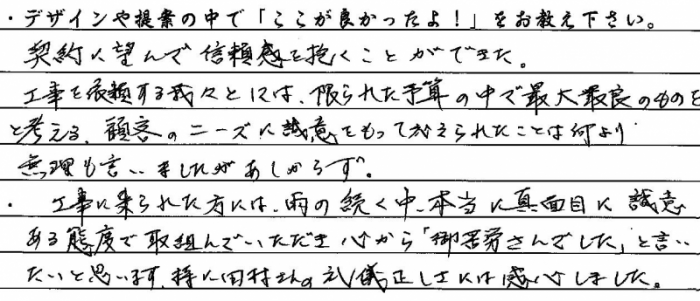 ・デザインや提案の中で「ここが良かったよ!」をお教え下さい。
契約に望んで信頼感を抱くことができた。
工事を依頼する我々としては、限られた予算の中で最大最良のものを
と考える、顧客のニーズに誠意をもって答えられたことは何より
無理も言いましたがあしからず。
・ 工事に来られた方には、雨の続く中、本当に真面目に誠意
ある態度で取組んでいただき心から「御苦労さんでした」と言い
たいと思います。特に田村さんの礼儀正しさには感心しました。